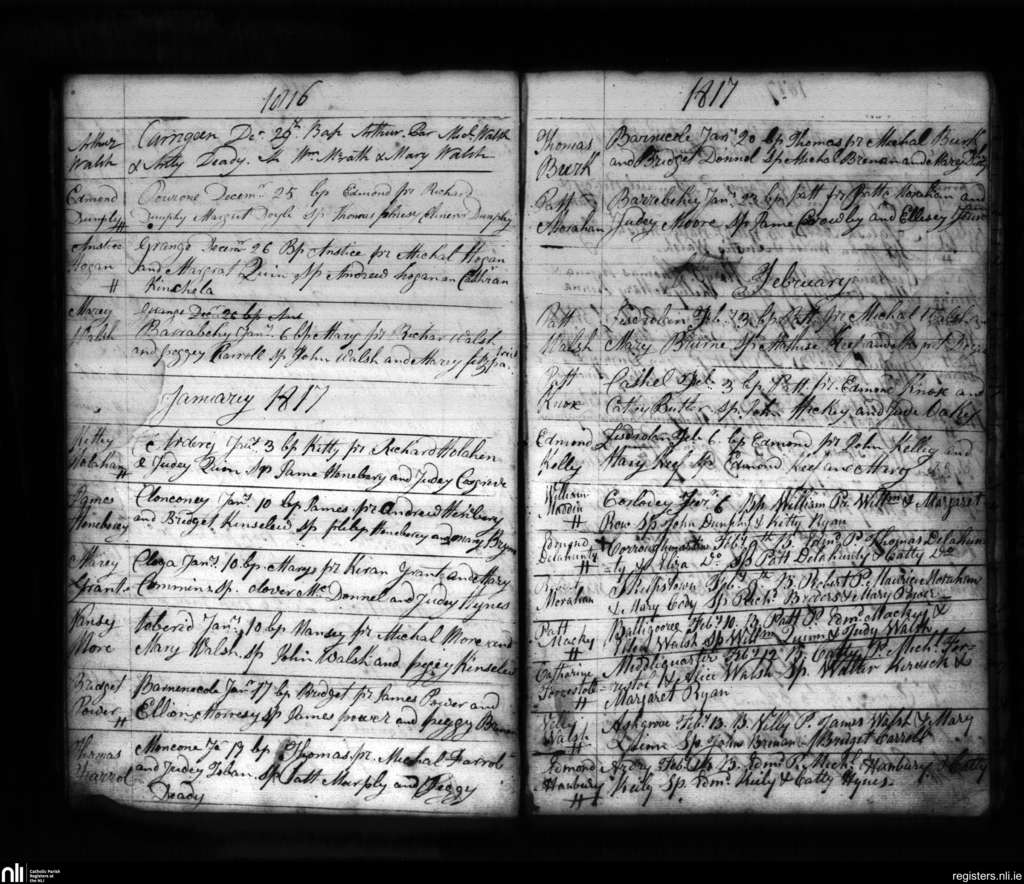 1816
Arthur Walsh
Carrigeen Dec. 29th Bap Arthur. Par Mich. Walsh
& Anty Deady. Sp Wm Mrath & Mary Walsh
Edmond Dunply #
Pourone Decem. 25 bp Edmond pr Richard
Dunphy Margret Doyle Sp Thomas Dunphy
Anstice Hogan #
Grange Decem. 26 Bp Anstice pr Michal Hogan
and Margrat Quin Sp Andrew Hogan an Cathran
Kinshela
Marey Walsh
Grange Dec. 26 bp Ans
Barrabehy Jan. 6 bp Mary pr Richar Walsh
and peggey Carroll Sp John Walsh and Marey
January 1817
Kittey Holahan
Jan. 3 bp Kitty pr Richard Holahen
& Judey Quin Sp Jame Honebery and Judey Cosgrove
James Honeberey
Clonconey Jan. 10 bp James pr Andrew Henbery
and Bridget Kinseleid Sp philip Honeberey and mary Bryan
Marey Grant
Cloga Jan. 10 bp Marys pr Kiran Grant and Mary
Commins Sp. olover Mc Donnel and Judey Hynes
Nansey More
tobered Jan. 10 bp Nansey pr Michal More and
Mary Walsh Sp John Walsh and pegey Kinsela
Bridget Power #
Barnenocole Jan. 17 bp Bridget pr James Power and
Ellion Morresey Sp James power and peggy
Thomas Harrol
Moncone Ja 19 bp Thomas pr Mechal Harrol
and Judey Toban Sp Patt Murphy and Peggy
Deady
1817
Thomas Burk
Barnicole Jan. 20 bp Thomas pr Michal Burk
and Bridget Donnel Sp Michal Brenan and Mary
Patt Morahan
Barrabehey Jan. 23 bp Patt pr Patt Morahan and
Judey Moore Sp Jame Crowdy and Ellesey
February
Patt Walsh
Lisdroban Feb. 3 bp Patt pr Michal Walsh
Mary Bruine Sp
Patt Knox
Cashel Feb. 3 bp Patt pr. Edmond Knox and
Catey Butler Sp. John Hickey and Jude Oakey
Edmond Kelley
Lisdrolan Feb. 6. bp Edmond pr John Kelley and
Mary Keef Sp Edmond Keef and Mary
William Maddin #
Corlodey Feb. 6 Bp William Pr. Willm & Margaret
Row Sp John Dunphy & Kitty Ryan
Edmond Delahunty #
B. Edmd. P. Thomas Delahun
ty & Eliza Do. Sp Patt Delahunty & Catty Do
Robert Morahan
Phelpstown Feb. B. Robert P. Maurice Morahan
& Mary Cody Sp Richd. Broders & Mary Power
Patt Macky #
Balligoree Feb. 10. B. Patt P. Edmd. Macky &
Nelly Walsh Sp Willm Quinn & Judy Walsh
Catharine Forrestol #
Middlequarter Feb. 12. B. Catty P. Mich. For-
restol & Alice Walsh Sp. Walter Kirwick &
Margaret Ryan
Nelly Walsh #
Ashgrove Feb. 13. B. Nelly P. James Walsh & Mary
Quinn Sp John Brenan & Bridget Carroll
Edmond Hanbury #
Ardry Feb. B. Edmd. P. Mich. Hanbury & Catty
Kiely Sp. Edmd. Kiely & Catty Hynes.
nli
Catholic Parish
Registers at
the NLI
registers.nli.ie